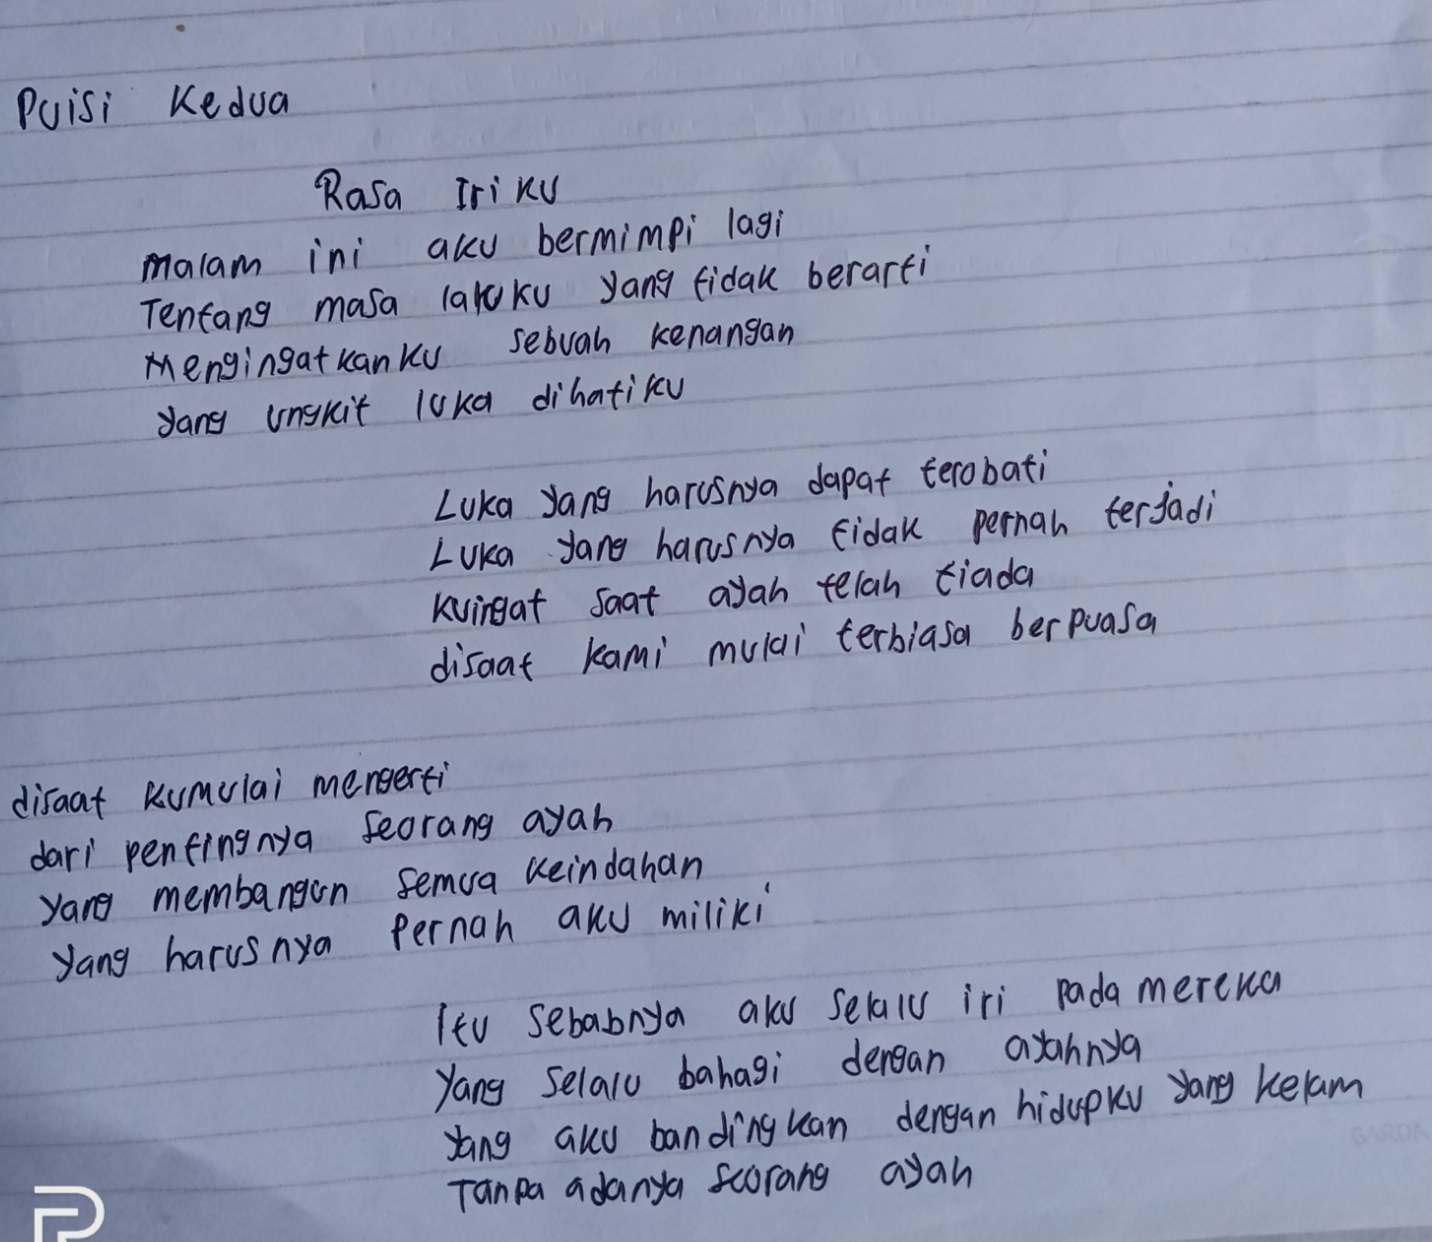 Puisi Kedua
Rasa Iriku
Malam ini aku bermimpi lagi
Tentang masa laluku yang tidak berarti
Mengingatkanku sebuah kenangan
yang ungkit luka dihatiku
Luka yang harusnya dapat terobati
Luka yang harusnya tidak pernah terjadi
Kuingat saat ayah telah tiada
disaat kami mulai terbiasa berpuasa
disaat kumulai mengerti
dari pentingnya seorang ayah
yang membangun semua keindahan
yang harusnya pernah aku miliki
Itu sebabnya aku selalu iri pada mereka
yang selalu bahagi dengan ayahnya
yang aku bandingkan dengan hidupku yang kelam
Tanpa adanya seorang ayah